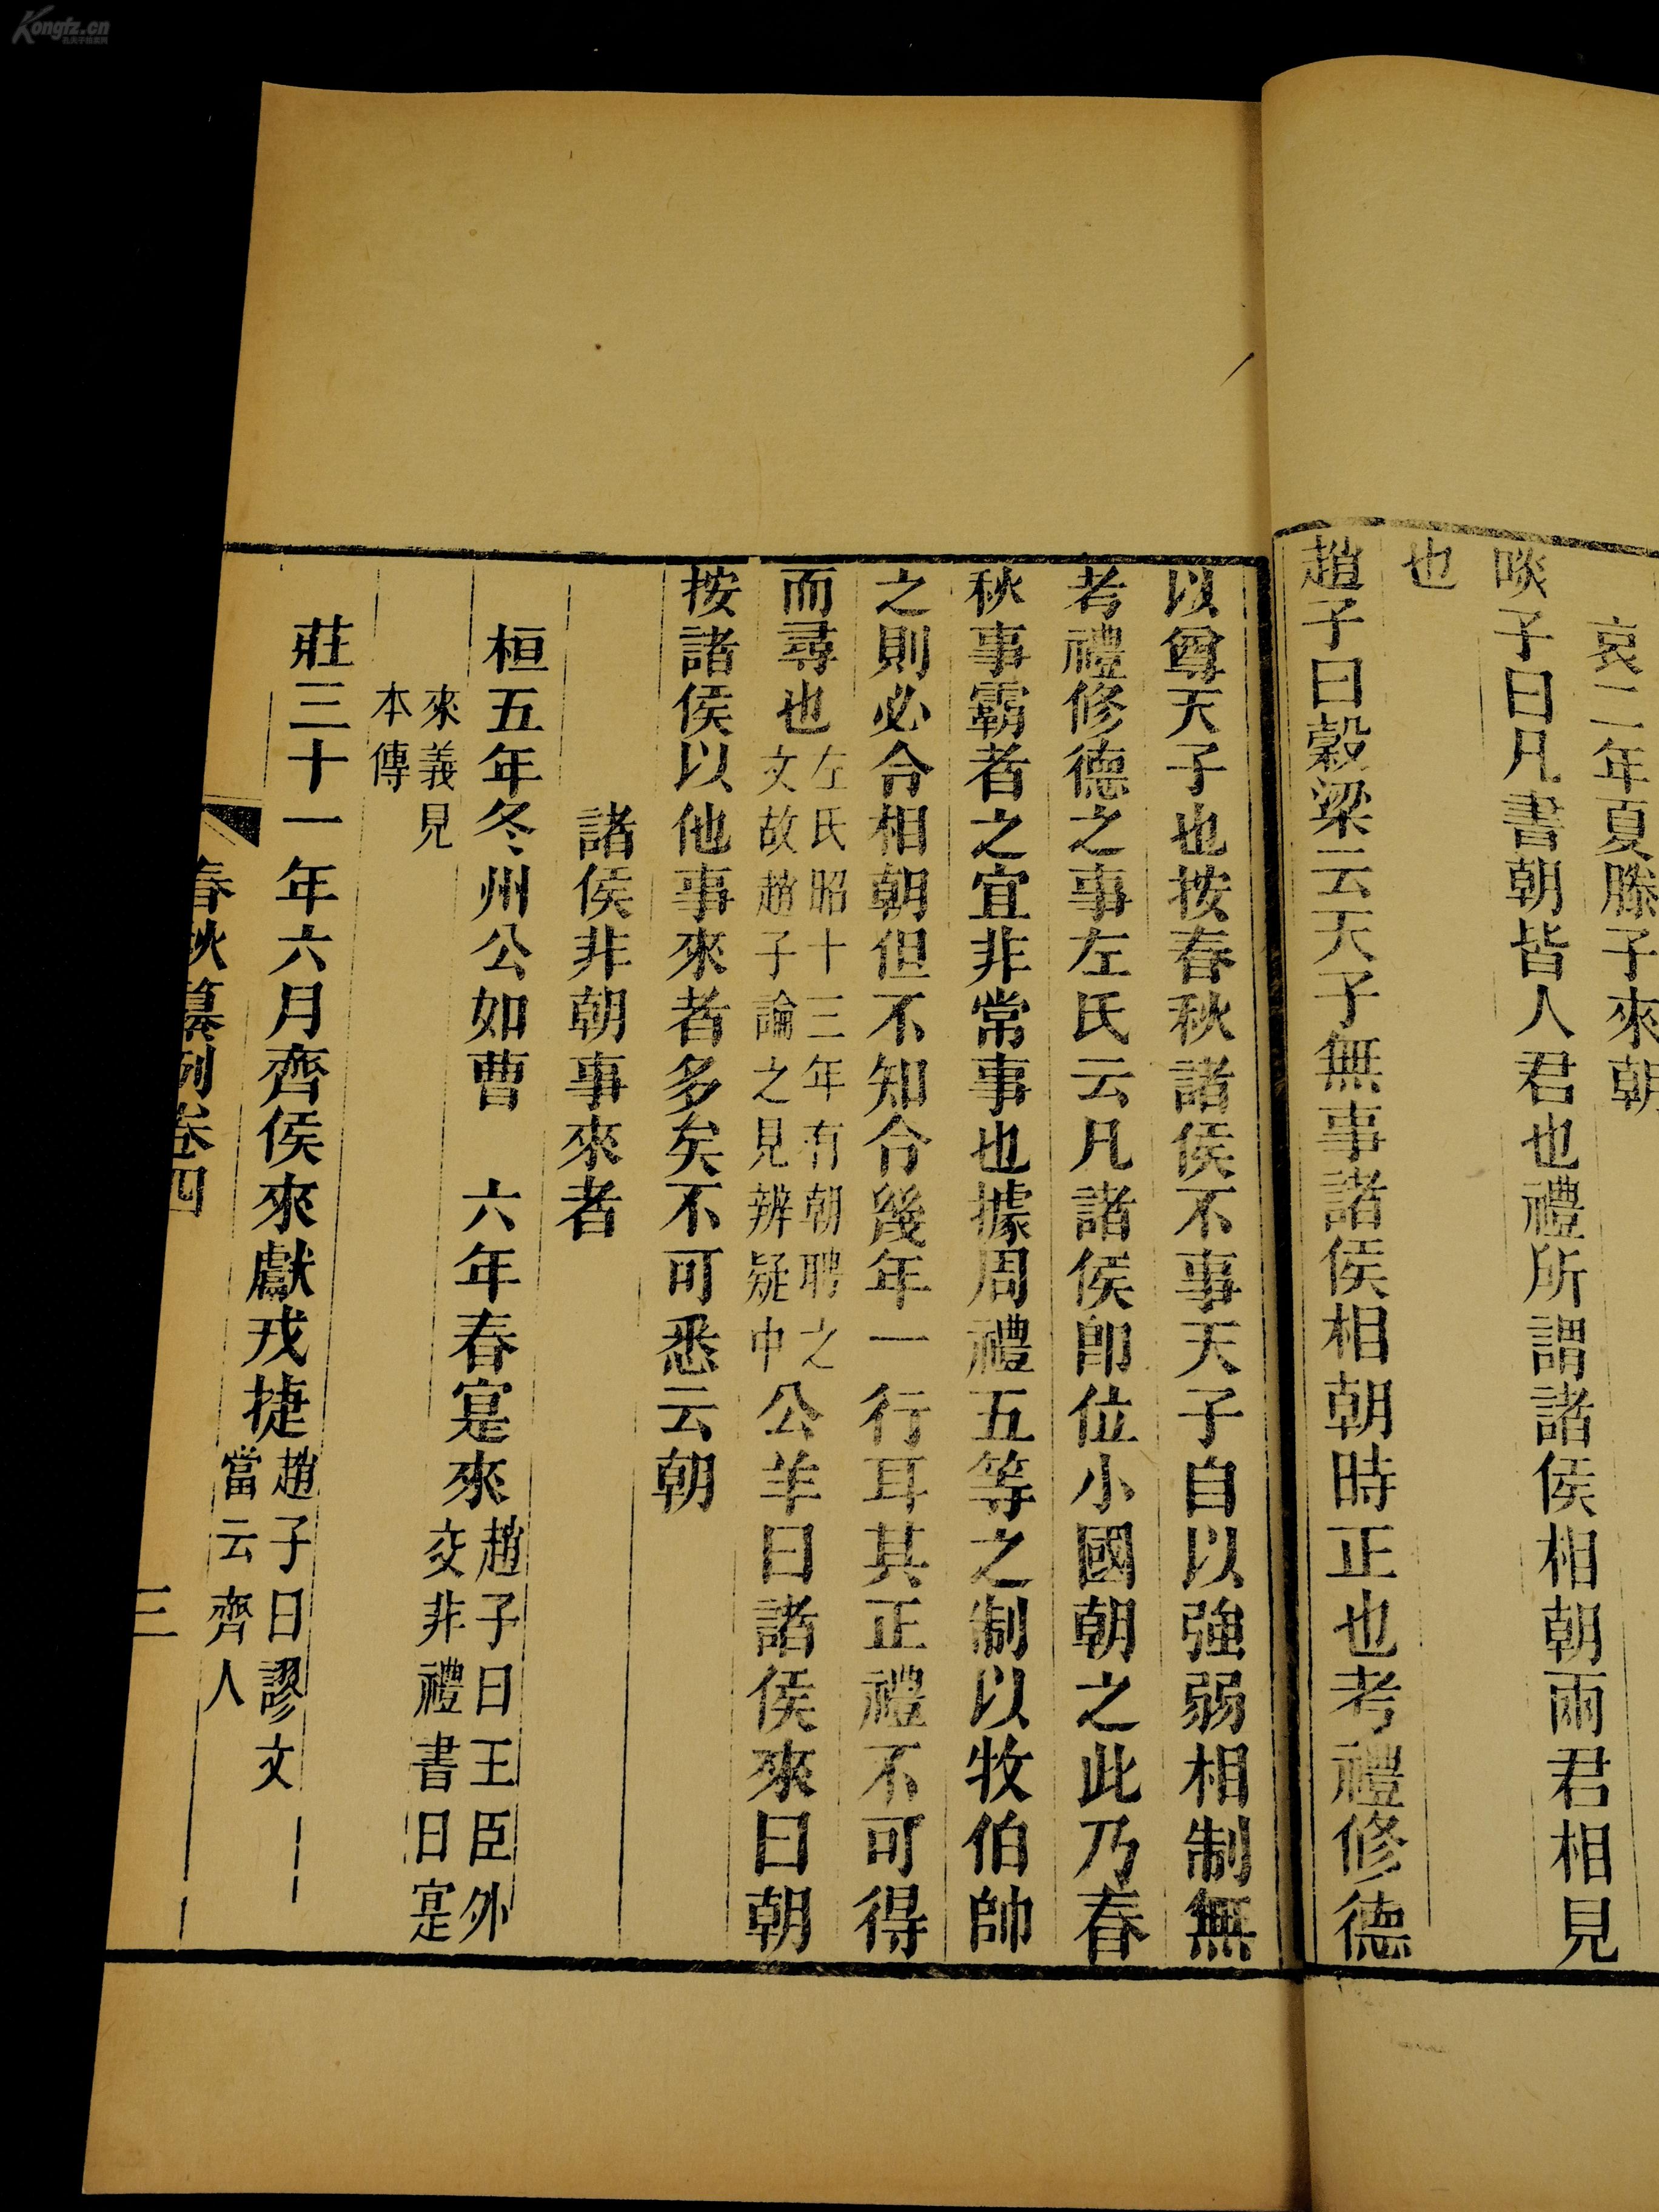 哀二年夏滕子來朝
啖子曰凡書朝皆人君也禮所謂諸侯相朝兩君相見
也
趙子曰穀梁云天子無事諸侯相朝時正也考禮修德
以尊天子也按春秋諸侯不事天子自以強弱相制無
考禮修德之事左氏云凡諸侯卽位小國朝之此乃春
秋事霸者之宜非常事也據周禮五等之制以牧伯帥
之則必合相朝但不知合幾年一行耳其正禮不可得
而尋也左氏昭十三年有朝聘之文故趙子論之見辨疑中公羊曰諸侯來曰朝
按諸侯以他事來者多矣不可悉云朝
諸侯非朝事來者
桓五年冬州公如曹 六年春寔來趙子曰王臣外交非禮書曰寔
來義見本傳
莊三十一年六月齊侯來獻戎捷趙子曰謬文當云齊人
春秋纂例卷四
三
Kongfz.cn